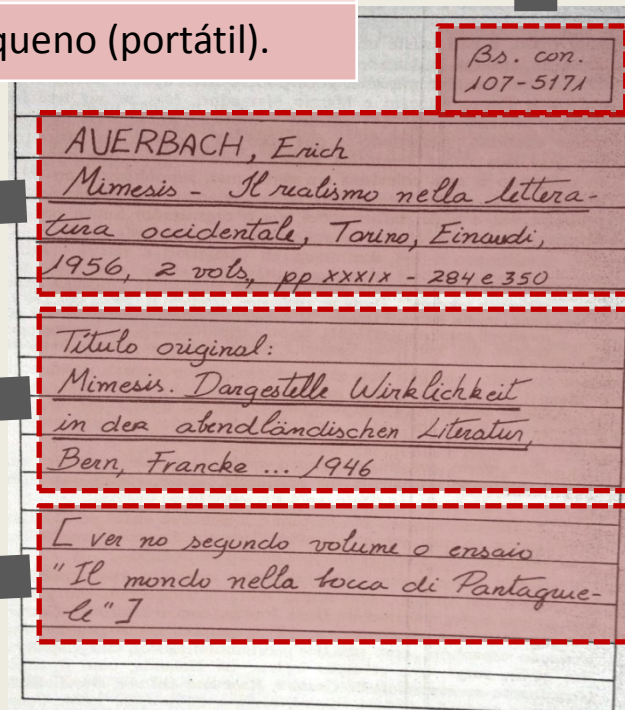 queno (portátil).
Bs. con.
107-5171
AUERBACH, Erich
Mimesis - Il realismo nella lettera-
tura occidentale, Torino, Einaudi,
1956, 2 vols, pp XXXIX - 284 e 350
Título original:
Mimesis. Dargestelle Wirklichkeit
in der abendländischen Literatur,
Bern, Francke ... 1946
[ ver no segundo volume o ensaio
"Il mondo nella bocca di Pantague-
le"]